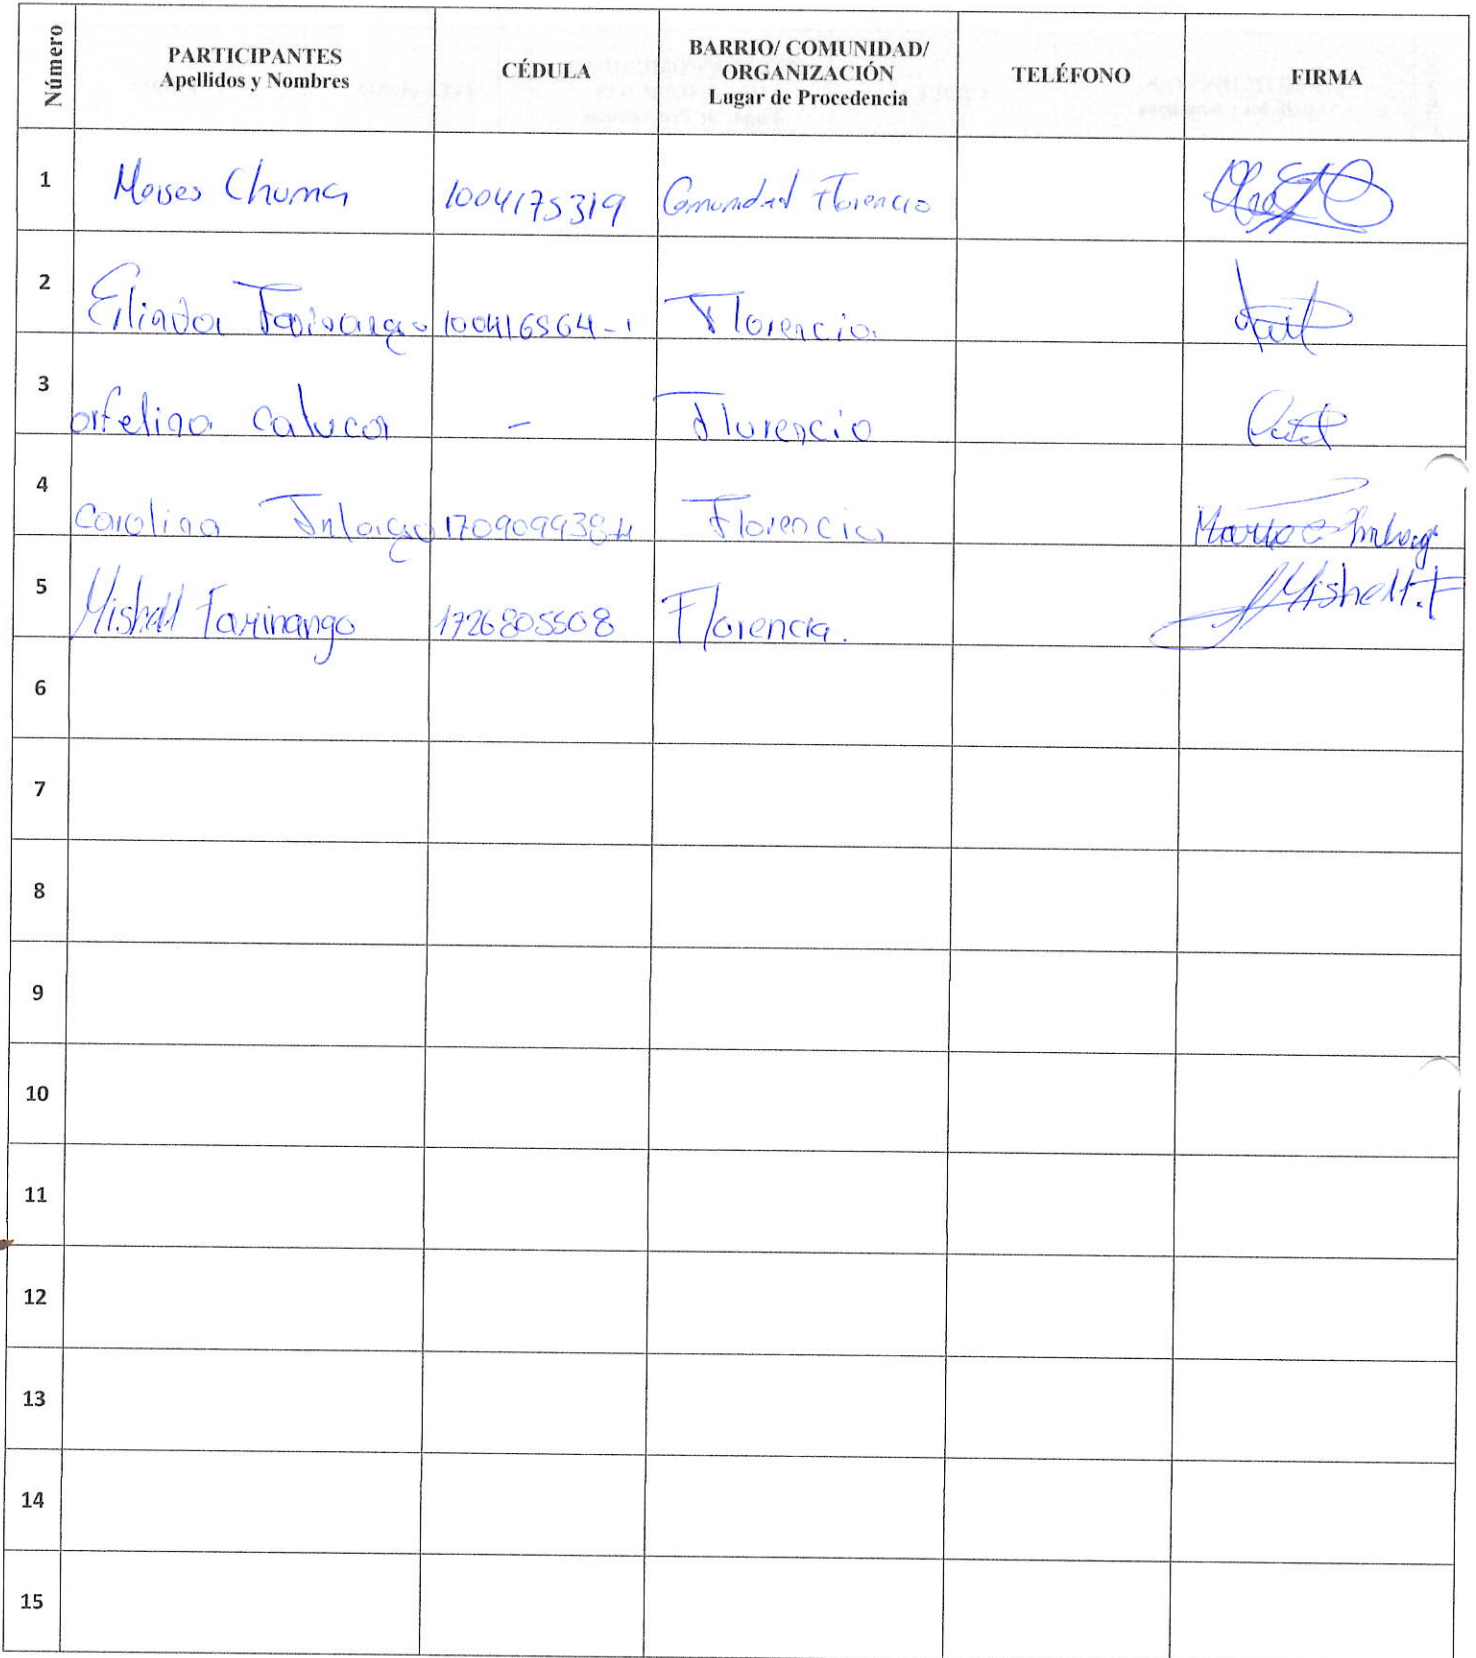 Número PARTICIPANTES Apellidos y Nombres CÉDULA BARRIO/ COMUNIDAD/ ORGANIZACIÓN Lugar de Procedencia TELÉFONO FIRMA
1 Moises Chuma 1004175319 Comunidad Florencia
2 Eliada Farinango 100416564-1 Florencia
3 orfelina Caluca - Florencia
4 Carolina Inlago 170909938-4 Florencia
5 Mishell Farinango 1726805508 Florencia. Mishell.F
6
7
8
9
10
11
12
13
14
15